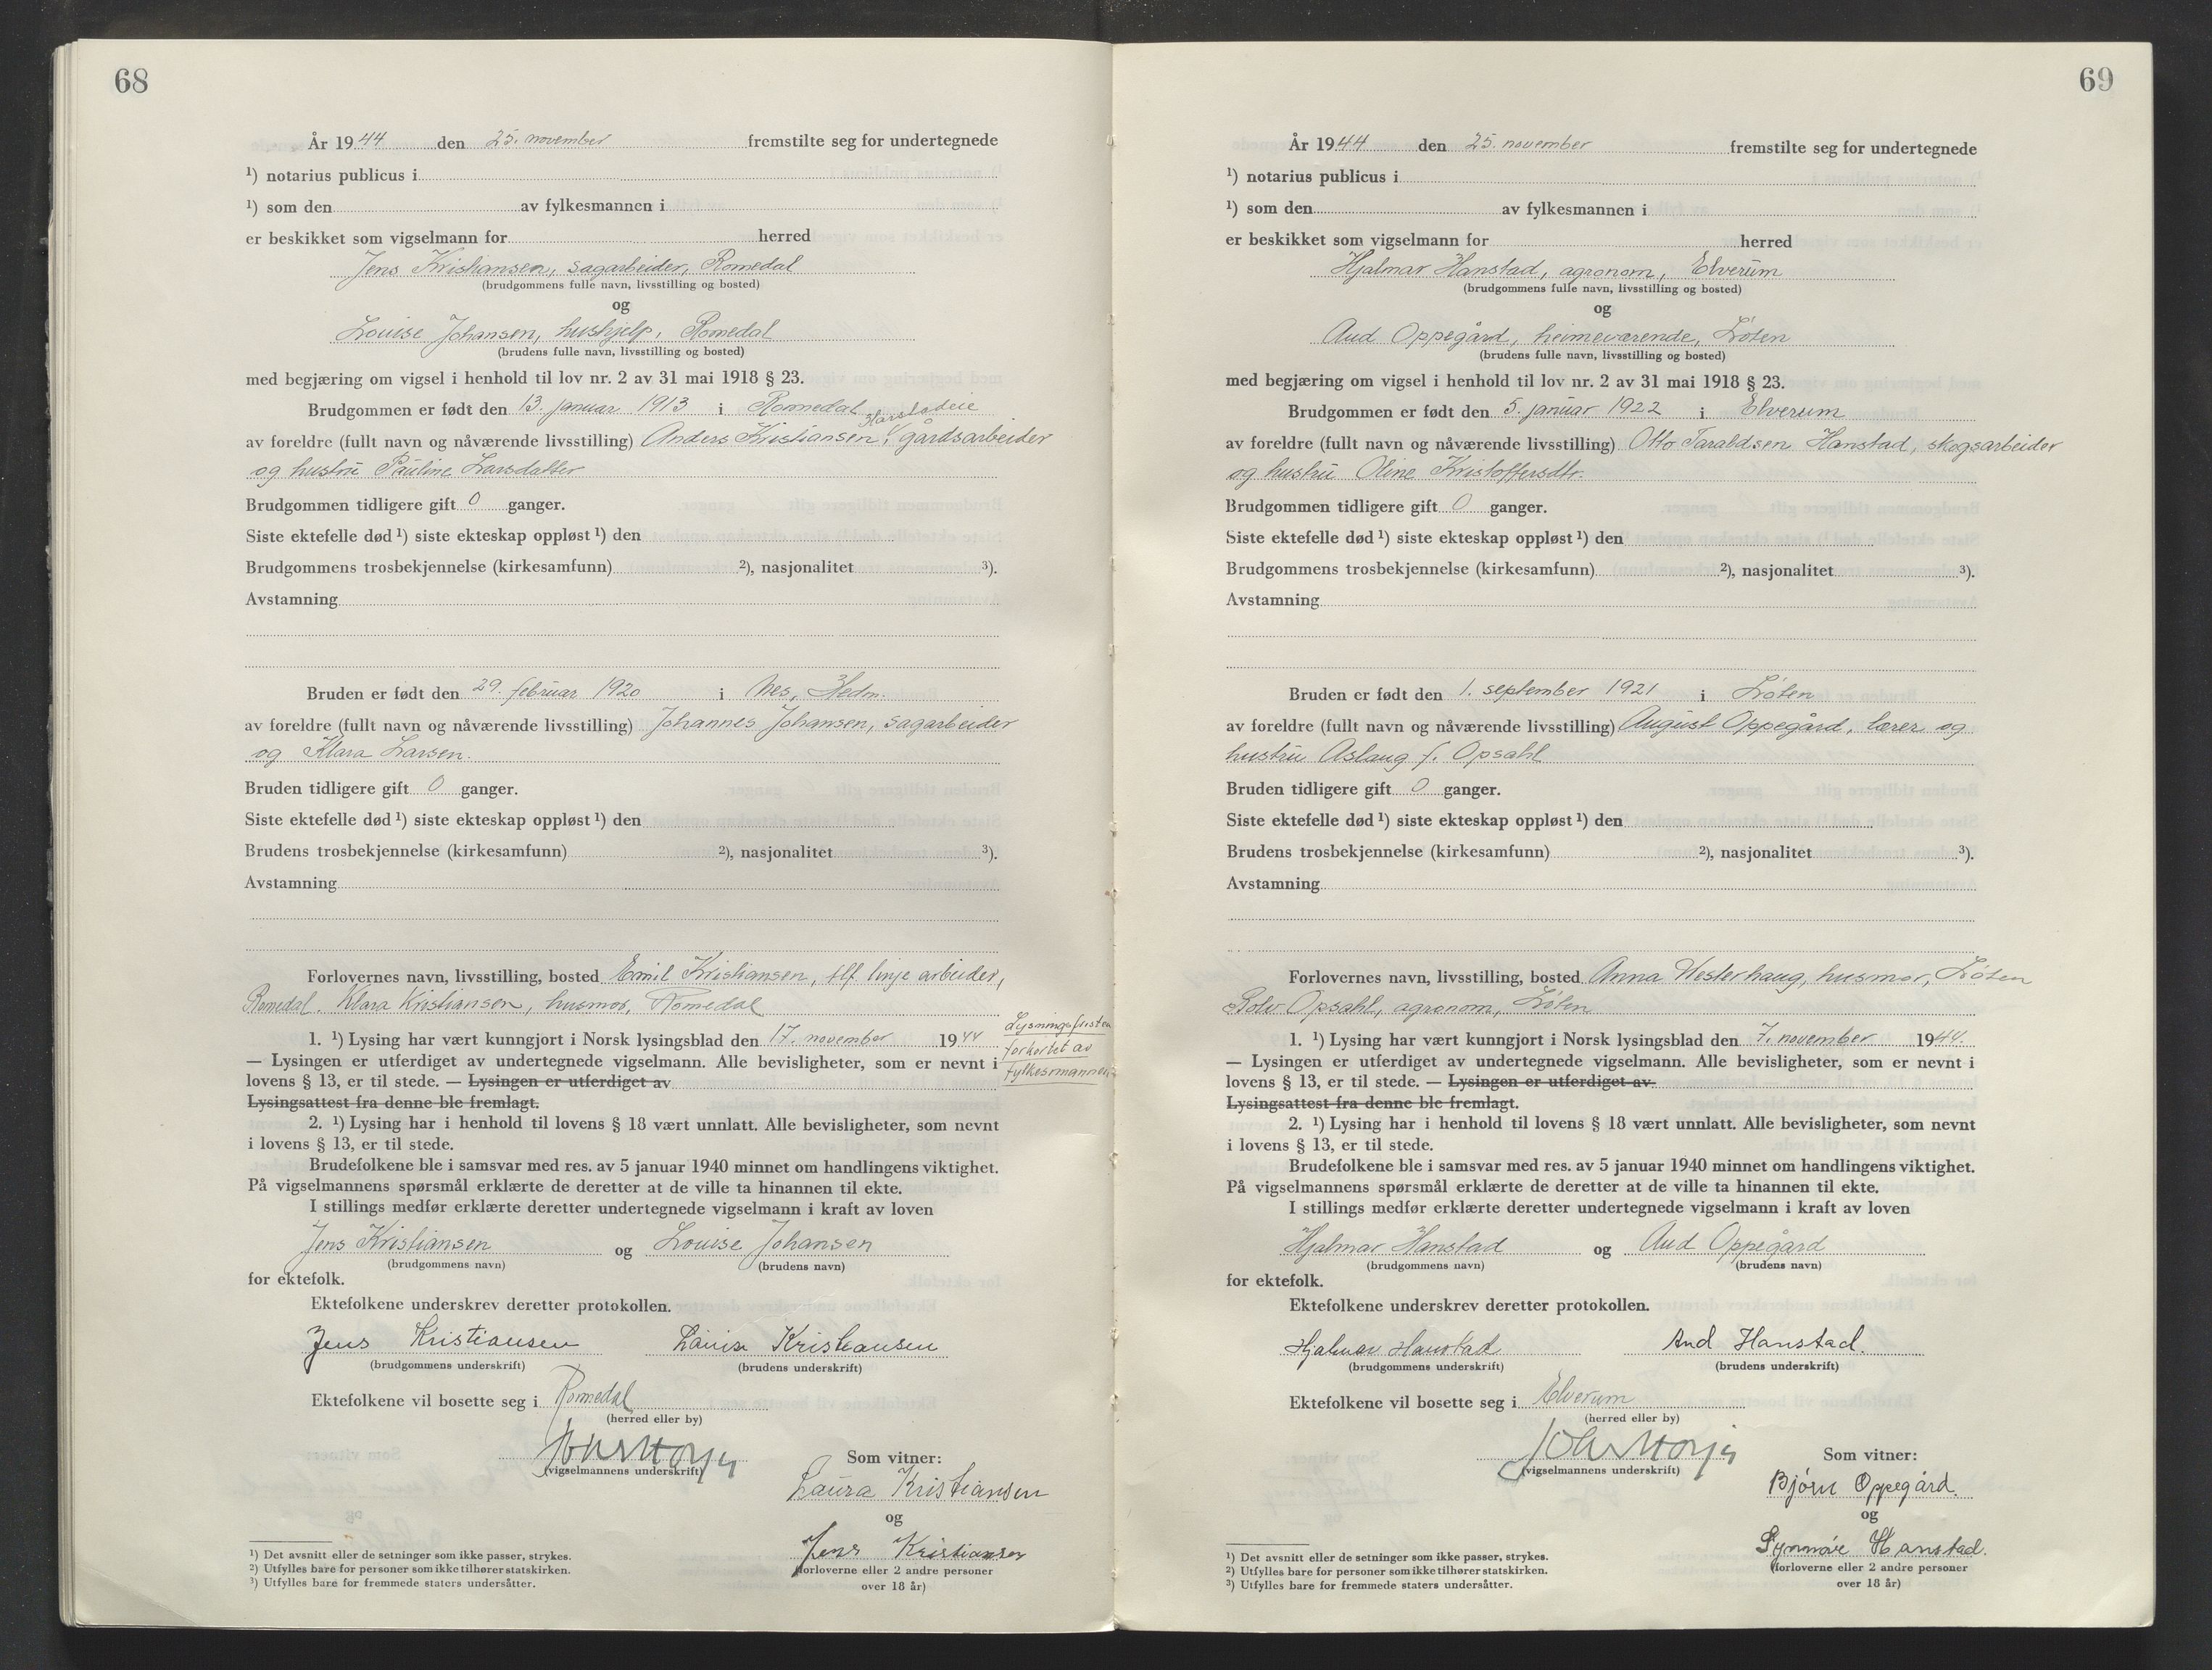 68
År 1944 den 25. november fremstilte seg for undertegnede
¹) notarius publicus i
¹) som den av fylkesmannen i
er beskikket som vigselmann for herred
Jens Kristiansen, sagarbeider, Romedal
(brudgommens fulle navn, livsstilling og bosted)
og
Louise Johansen, hushjelp, Romedal
(brudens fulle navn, livsstilling og bosted)
med begjæring om vigsel i henhold til lov nr. 2 av 31 mai 1918 § 23.
Brudgommen er født den 13. januar 1913 i Romedal
av foreldre (fullt navn og nåværende livsstilling) Anders Kristiansen, gårdsarbeider
og hustru Pauline Larsdatter
Brudgommen tidligere gift 0 ganger.
Siste ektefelle død ¹) siste ekteskap oppløst ¹) den
Brudgommens trosbekjennelse (kirkesamfunn) ²), nasjonalitet ³).
Avstamning
Bruden er født den 29. februar 1920 i Nes, Hedm.
av foreldre (fullt navn og nåværende livsstilling) Johannes Johansen, sagarbeider
og Klara Larsen.
Bruden tidligere gift 0 ganger.
Siste ektefelle død ¹) siste ekteskap oppløst ¹) den
Brudens trosbekjennelse (kirkesamfunn) ²), nasjonalitet ³).
Avstamning
Forlovernes navn, livsstilling, bosted Emil Kristiansen, tlf. linje arbeider,
Romedal. Klara Kristiansen, husmor, Romedal
1. ¹) Lysing har vært kunngjort i Norsk lysingsblad den 17. november 1944
Lysningsfristen
forkortet av
fylkesmannen
— Lysingen er utferdiget av undertegnede vigselmann. Alle bevisligheter, som er nevnt i
lovens § 13, er til stede. — Lysingen er utferdiget av
Lysingsattest fra denne ble fremlagt.
2. ¹) Lysing har i henhold til lovens § 18 vært unnlatt. Alle bevisligheter, som nevnt
i lovens § 13, er til stede.
Brudefolkene ble i samsvar med res. av 5 januar 1940 minnet om handlingens viktighet.
På vigselmannens spørsmål erklærte de deretter at de ville ta hinannen til ekte.
I stillings medfør erklærte deretter undertegnede vigselmann i kraft av loven
Jens Kristiansen og Louise Johansen
(brudgommens navn) (brudens navn)
for ektefolk.
Ektefolkene underskrev deretter protokollen.
Jens Kristiansen Louise Kristiansen
(brudgommens underskrift) (brudens underskrift)
Ektefolkene vil bosette seg i Romedal
(herred eller by)
(vigselmannens underskrift)
Som vitner:
Laura Kristiansen
og
Jens Kristiansen
(forloverne eller 2 andre personer
over 18 år)
¹) Det avsnitt eller de setninger som ikke passer, strykes.
²) Utfylles bare for personer som ikke tilhører statskirken.
³) Utfylles bare for fremmede staters undersåtter.
69
År 1944 den 25. november fremstilte seg for undertegnede
¹) notarius publicus i
¹) som den av fylkesmannen i
er beskikket som vigselmann for herred
Hjalmar Hanstad, agronom, Elverum
(brudgommens fulle navn, livsstilling og bosted)
og
Aud Oppegård, heimeværende, Løten
(brudens fulle navn, livsstilling og bosted)
med begjæring om vigsel i henhold til lov nr. 2 av 31 mai 1918 § 23.
Brudgommen er født den 5. januar 1922 i Elverum
av foreldre (fullt navn og nåværende livsstilling) Otto Taraldsen Hanstad, skogsarbeider
og hustru Oline Kristoffersdtr.
Brudgommen tidligere gift 0 ganger.
Siste ektefelle død ¹) siste ekteskap oppløst ¹) den
Brudgommens trosbekjennelse (kirkesamfunn) ²), nasjonalitet ³).
Avstamning
Bruden er født den 1. september 1921 i Løten
av foreldre (fullt navn og nåværende livsstilling) August Oppegård, lærer og
hustru Aslaug f. Opsahl
Bruden tidligere gift 0 ganger.
Siste ektefelle død ¹) siste ekteskap oppløst ¹) den
Brudens trosbekjennelse (kirkesamfunn) ²), nasjonalitet ³).
Avstamning
Forlovernes navn, livsstilling, bosted Anna Westerhaug, husmor, Løten
Solv Opsahl, agronom, Løten
1. ¹) Lysing har vært kunngjort i Norsk lysingsblad den 7. november 1944.
— Lysingen er utferdiget av undertegnede vigselmann. Alle bevisligheter, som er nevnt i
lovens § 13, er til stede. — Lysingen er utferdiget av
Lysingsattest fra denne ble fremlagt.
2. ¹) Lysing har i henhold til lovens § 18 vært unnlatt. Alle bevisligheter, som nevnt
i lovens § 13, er til stede.
Brudefolkene ble i samsvar med res. av 5 januar 1940 minnet om handlingens viktighet.
På vigselmannens spørsmål erklærte de deretter at de ville ta hinannen til ekte.
I stillings medfør erklærte deretter undertegnede vigselmann i kraft av loven
Hjalmar Hanstad og Aud Oppegård
(brudgommens navn) (brudens navn)
for ektefolk.
Ektefolkene underskrev deretter protokollen.
Hjalmar Hanstad Aud Hanstad.
(brudgommens underskrift) (brudens underskrift)
Ektefolkene vil bosette seg i Elverum
(herred eller by)
(vigselmannens underskrift)
Som vitner:
Bjørn Oppegård.
og
Synnøve Hanstad.
(forloverne eller 2 andre personer
over 18 år)
¹) Det avsnitt eller de setninger som ikke passer, strykes.
²) Utfylles bare for personer som ikke tilhører statskirken.
³) Utfylles bare for fremmede staters undersåtter.